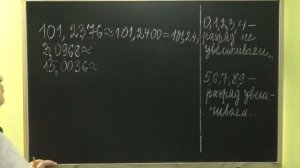 101,2376≈101,2400=101,24
3,0968≈
15,0036≈
0,1,2,3,4–
разряд не
увеличиваем.
5,6,7,8,9–
разряд увели-
чиваем.